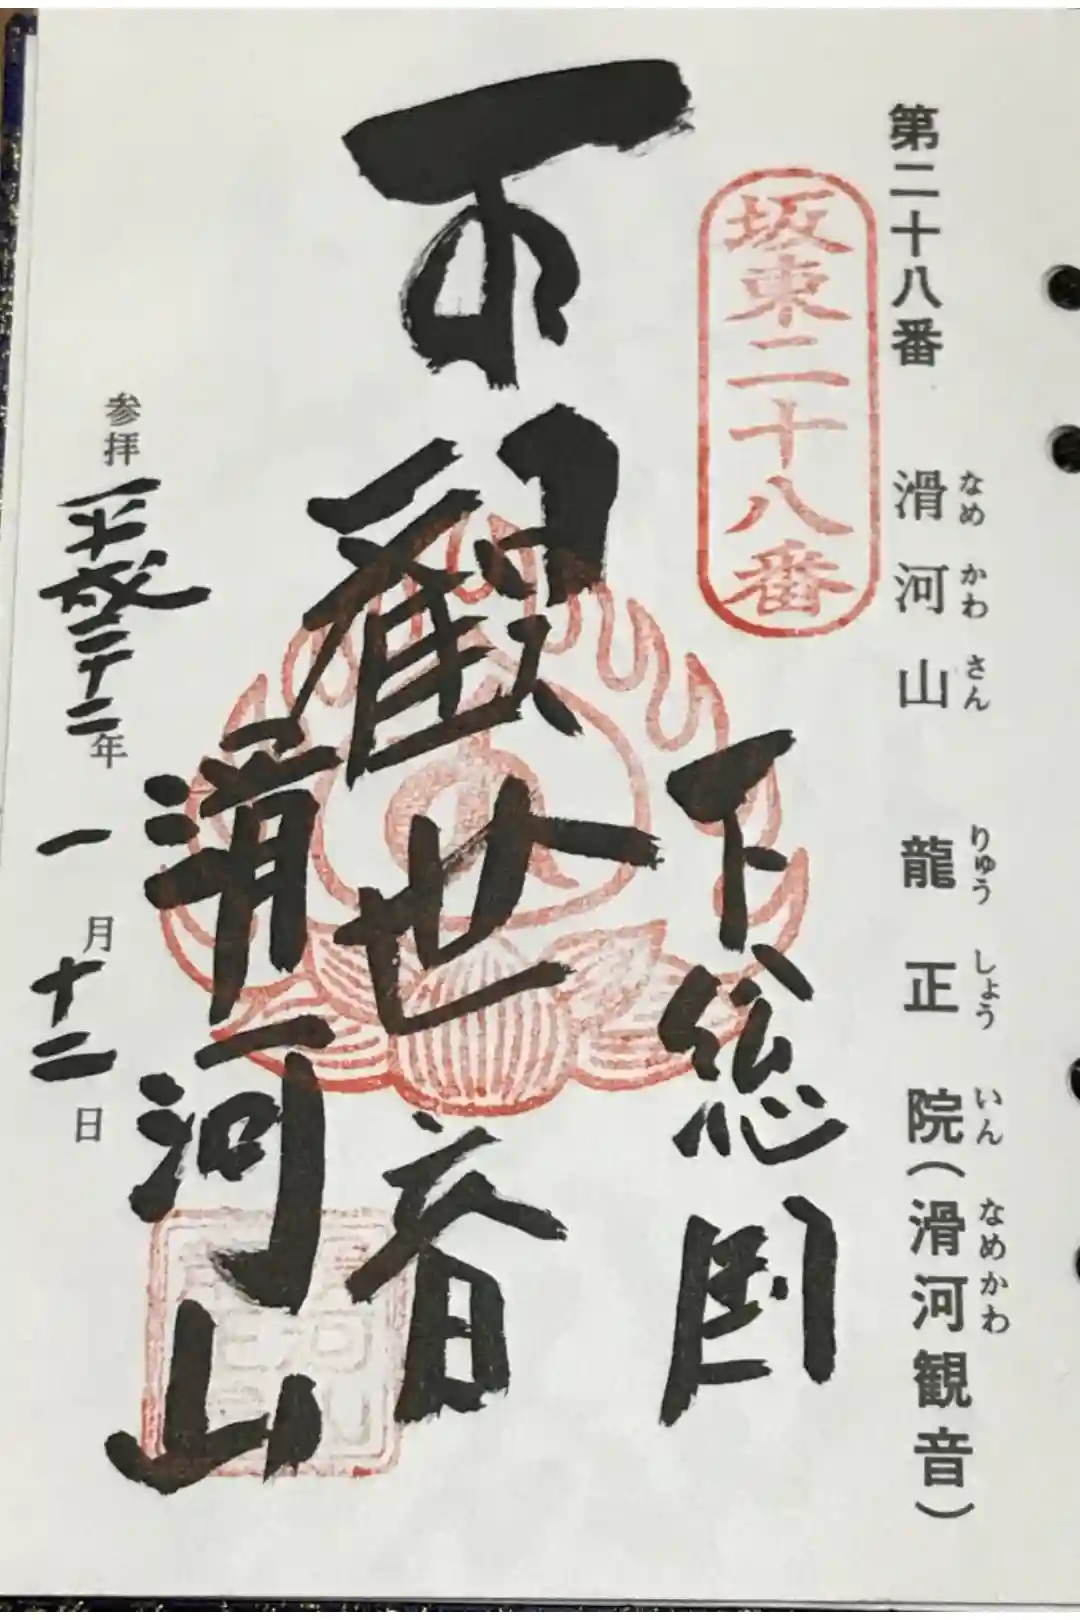 なめ かわ さん りゅう しょう いん なめかわ
第二十八番 滑河山 龍正院(滑河観音)
坂東二十八番
下総国
観世音
滑河山
参拝 平成二十二年 一月十二日